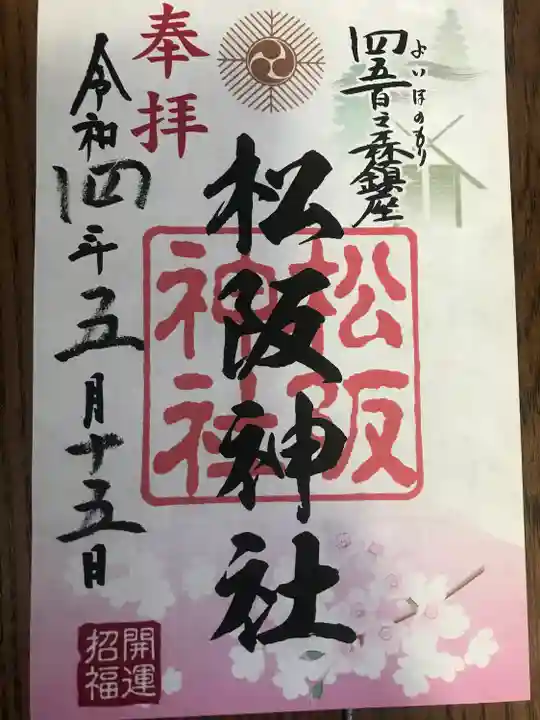 四五百之森鎮座
よいほのもり
奉拝
松阪神社
松阪
神社
令和四年五月十五日
開運
招福